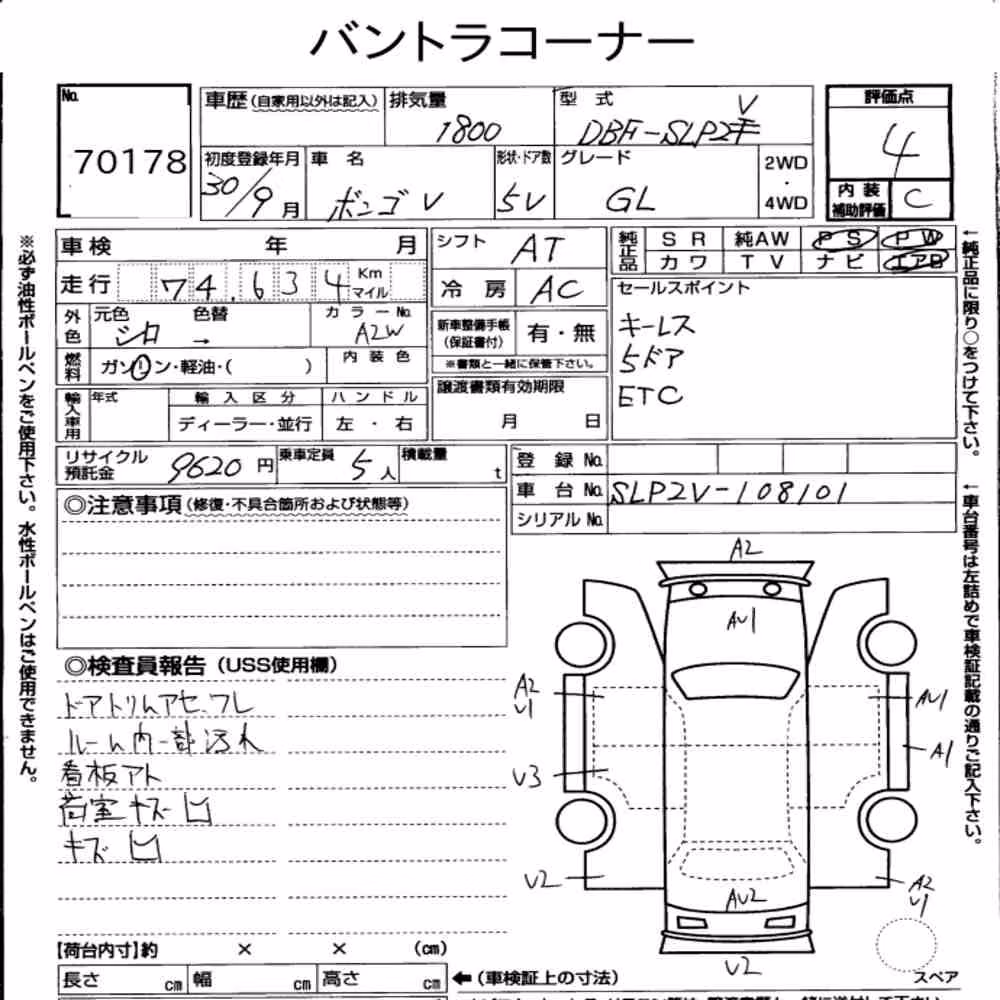 バントラコーナー
No.
70178
車歴(自家用以外は記入)
排気量
1800
型 式
DBF-SLP2
V
評価点
4
初度登録年月
30/9月
車 名
ボンゴV
形状・ドア数
5V
グレード
GL
2WD
・
4WD
内 装
補助評価
C
車検 年 月
シフト
AT
純正品
SR 純AW PS PW
カワ TV ナビ エアB
走行
74.634
Km
マイル
冷 房
AC
セールスポイント
キーレス
5ドア
ETC
外色
元色 色替
シロ →
カラーNo.
A2W
新車整備手帳
(保証書付)
有・無
※書類と一緒に保管下さい。
燃料
ガソリン・軽油・( )
内 装 色
譲渡書類有効期限
月 日
輸入車用
年式
輸 入 区 分
ディーラー・並行
ハ ン ド ル
左 ・ 右
リサイクル
預託金
9620円
乗車定員
5人
積載量
t
登 録 No.
車 台 No.
SLP2V-108101
シリアル No.
◎注意事項(修復・不具合箇所および状態等)
◎検査員報告(USS使用欄)
ドアトリムアセ.フレ
ルーム内一部汚れ
看板アト
荷室キズ凹
キズ凹
A2
AU1
A2
U1
AU1
A1
U3
U2
A2
U1
AU2
U2
スペア
【荷台内寸】約 × × (cm)
長さ cm 幅 cm 高さ cm
←(車検証上の寸法)
※必ず油性ボールペンをご使用下さい。水性ボールペンはご使用できません。
←純正品に限り○をつけて下さい。
←車台番号は左詰めで車検証記載の通りご記入下さい。